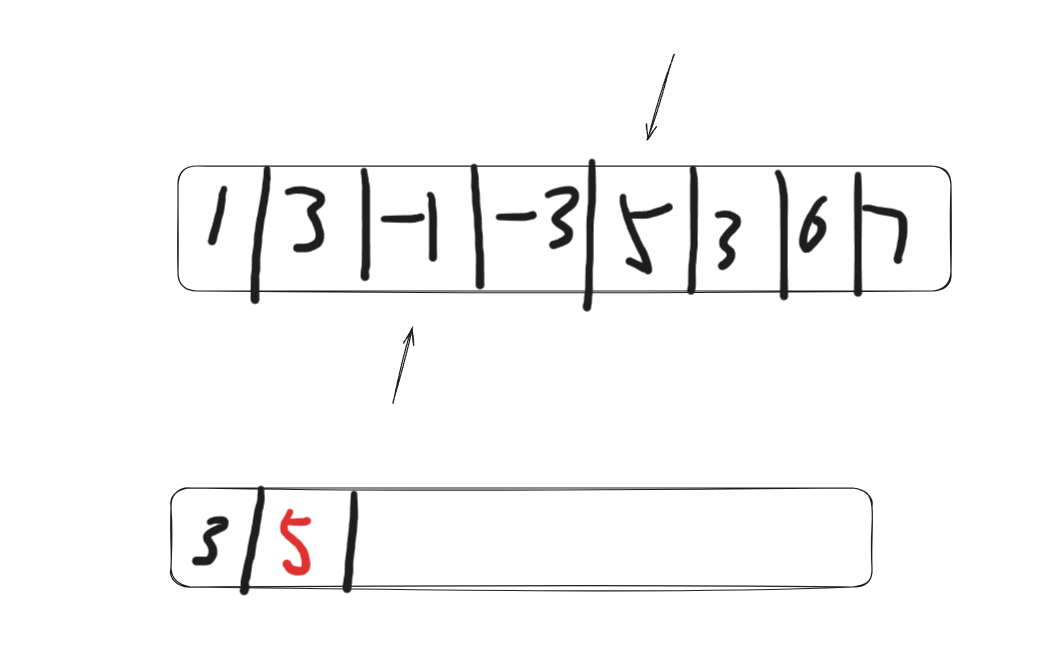 1 3 -1 -3 5 3 6 7
3 5